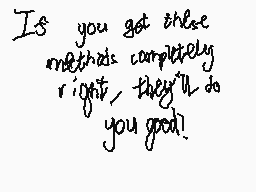 If you got these
methods completely
right, they'll do
you good!